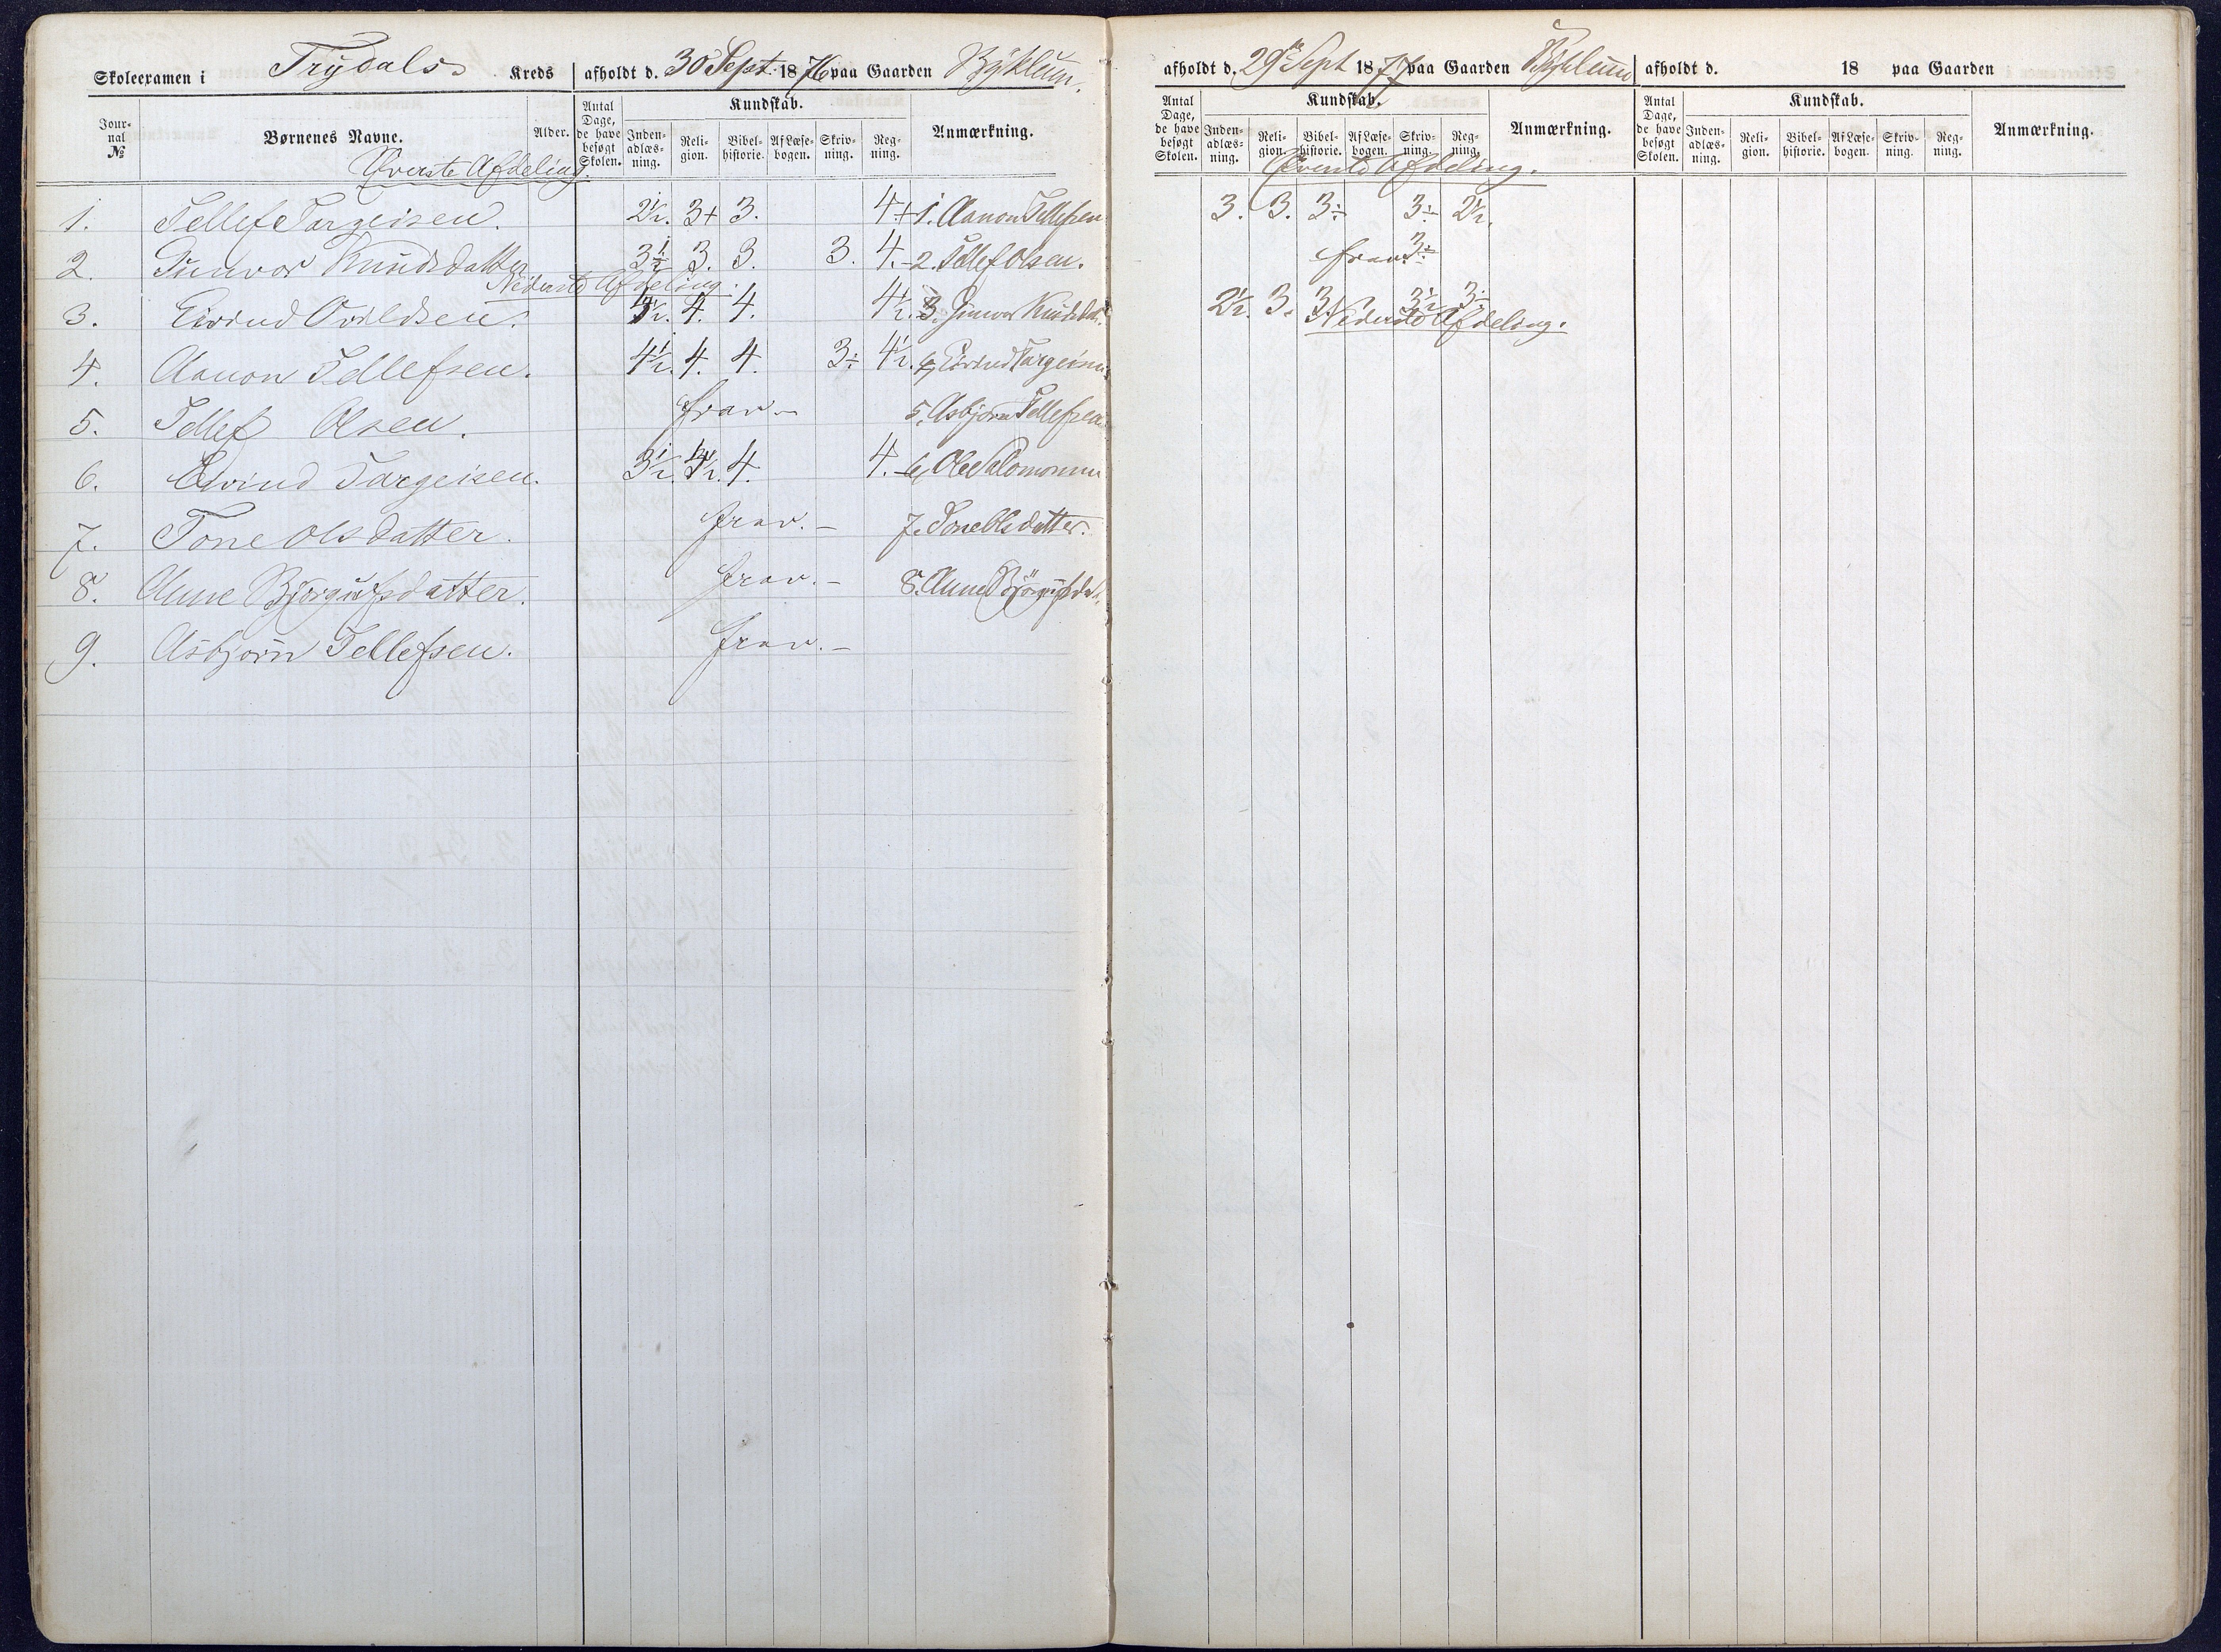 Skoleeramen i Trydals Kreds afholdt d. 30 Sept. 1876 paa Gaarden Byklum.
Jour-nal № Børnenes Navne. Alder. Antal Dage, de have besøgt Skolen. Kundskab. Inden-adlæs-ning. Reli-gion. Bibel-historie. Af Læse-bogen. Skriv-ning. Reg-ning. Anmærkning.
Øverste Afdeling.
1. Tellef Targeisen. 2½. 3+ 3. 4+ 1. Aanon Tellefsen
2. Gunvor Knudsdatter 3. 3. 3. 4. 2. Tellef Olsen.
Nederste Afdeling.
3. Eivind Ovildsen. 4. 4. 4½. 3. Gunvor Knudsdat.
4. Aanon Tellefsen. 4½. 4. 4. 3÷ 4½. 4. Eivind Targeisen
5. Tellef Olsen. frav. 5. Asbjørn Tellefsen
6. Eivind Targeisen. 3½. 4. 4. 6. Ole Salomonsen
7. Tone Olsdatter. frav. 7. Tone Olsdatter.
8. Anne Bjørgulfsdatter. frav. 8. Anne Bjørgulfsdat.
9. Asbjørn Tellefsen. frav.
afholdt d. 29de Sept 1877 paa Gaarden Byklum
Antal Dage, de have besøgt Skolen. Kundskab. Inden-adlæs-ning. Reli-gion. Bibel-historie. Af Læse-bogen. Skriv-ning. Reg-ning. Anmærkning.
Øverste Afdeling.
3. 3. 3÷ 3÷ 2½.
frav. 3÷
2½. 3. 3. 3½ 3÷
Nederste Afdeling.
afholdt d. 18 paa Gaarden
Antal Dage, de have besøgt Skolen. Kundskab. Inden-adlæs-ning. Reli-gion. Bibel-historie. Af Læse-bogen. Skriv-ning. Reg-ning. Anmærkning.